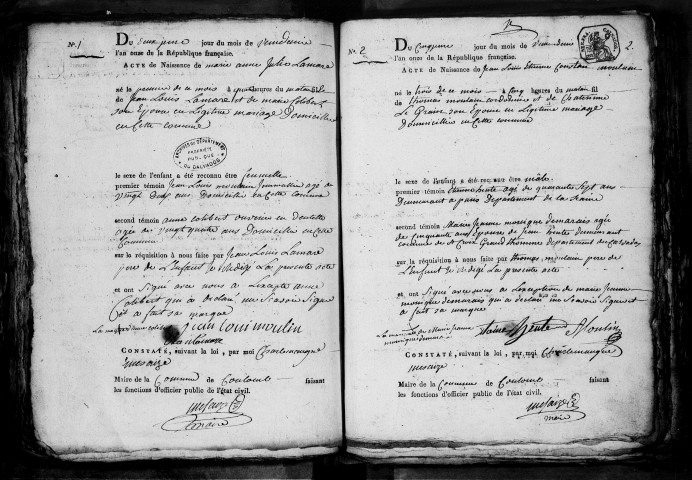 N.º 1
Du deuxieme jour du mois de vendemiaire
l'an onze de la République française.
Acte de Naissance de marie anne Julie Lamare
né le premier de ce mois à quatre heures du matin fille
de Jean Louis Lamare et de marie colibert
son Epouse en Legitime mariage Domiciliés
en cette commune
ARCHIVES DU DÉPARTEMENT
PROPRIÉTÉ
PUBLIQUE
DU CALVADOS
le sexe de l'enfant a été reconnu être femelle
premier témoin Jean Louis moulin Journallier agé de
vingt ans Domicilié en cette commune
second témoin anne colibert ouvriere en dentelle
agée de vingt quatre ans Domiciliée en cette
Commune
sur la réquisition à nous faite par Jean Louis Lamare
pere de L'Enfant Je rédigé La presente acte
et ont Signé avec nous a L'exepté anne
Colibert qui a declaré ne Scavoir Signé
et a fait sa marque
La marque anne colibert
Jean Loui moulin
Constaté, suivant la loi, par moi Charlemangne
mesaize
Maire de la Commune de Coulomb faisant
les fonctions d'officier public de l'état civil.
mesaize
maire
N.º 2
2.
Du Cinquieme jour du mois de Vendemiaire
l'an onze de la République française.
Acte de Naissance de Jean Louis Etienne Constan moulain
né le trois de ce mois à cinq heures du matin fil
de thomas moulain et de Catherinne
Le Grain son Epouse en Legitime mariage
Domiciliés en cette commune
le sexe de l'enfant a été reconnu être male
premier témoin agé de quarante Sept ans
Demeurant a paris Departement de la Seine
second témoin Marie Jeanne monique demarais agée
de Cinquante ans Epouse de Jean demeurant
commune de Ct Croix Grand thomme departement du Calvados
sur la réquisition à nous faite par thomas moulain pere de
L'enfant Je redigé La presente acte
et ont Signé avec nous a L'exeption de marie Jeanne
monique demarais qui a déclaré ne Scavoir Signé et
a fait sa marque
La marque de Marie Jeanne
monique demarais
Moulin
Constaté, suivant la loi, par moi Charlemangne
mesaize
Maire de la Commune de Coulomb faisant
les fonctions d'officier public de l'état civil.
mesaize
maire